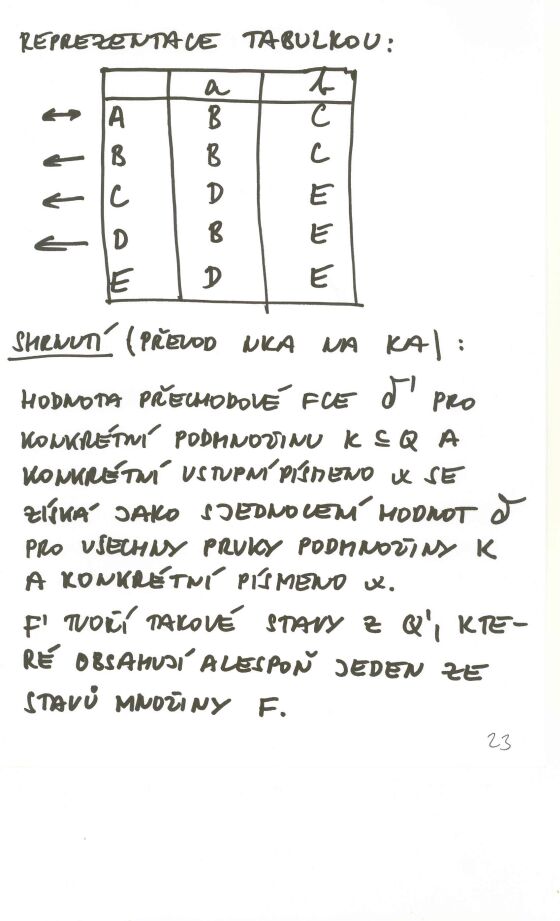 REPREZENTACE TABULKOU:
a b
↔ A B C
← B B C
← C D E
← D B E
E D E
SHRNUTÍ (PŘEVOD NKA NA KA):
HODNOTA PŘECHODOVÉ FCE δ' PRO
KONKRÉTNÍ PODMNOŽINU K ⊆ Q A
KONKRÉTNÍ VSTUPNÍ PÍSMENO x SE
ZÍSKÁ JAKO SJEDNOCENÍ HODNOT δ
PRO VŠECHNY PRVKY PODMNOŽINY K
A KONKRÉTNÍ PÍSMENO x.
F' TVOŘÍ TAKOVÉ STAVY Z Q', KTE-
RÉ OBSAHUJÍ ALESPOŇ JEDEN ZE
STAVŮ MNOŽINY F.
23